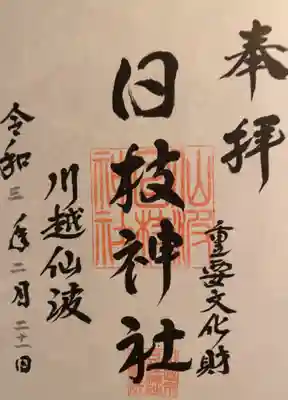 奉拝
重要文化財
日枝神社
川越仙波
令和三年二月二十一日